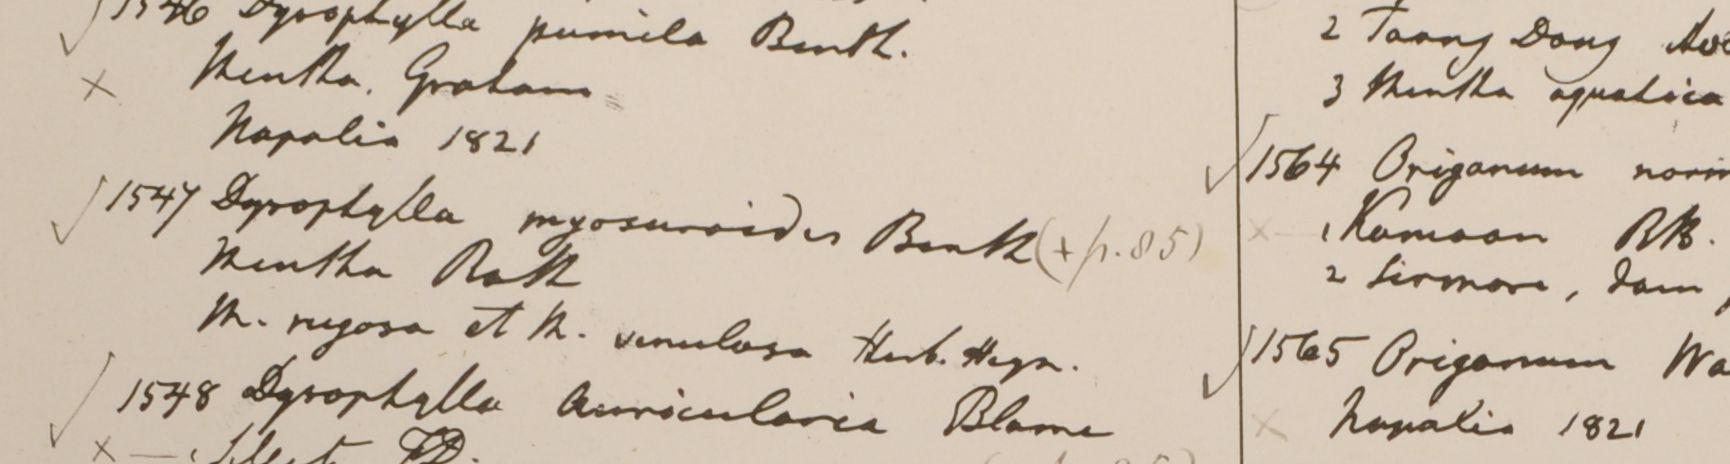 1546 Dysophylla pumila Benth.
Mentha. Graham
Napalia 1821
1547 Dysophylla myosuroides Benth (+ p. 85)
Mentha Roth
M. rugosa et M. venulosa Herb. Heyn.
1548 Dysophylla Auricularia Blume
2 Taong Dong
3 Mentha aquatica
1564 Origanum norm
1 Kamaon RB.
2 Sirmore,
1565 Origanum Wa
Napalia 1821